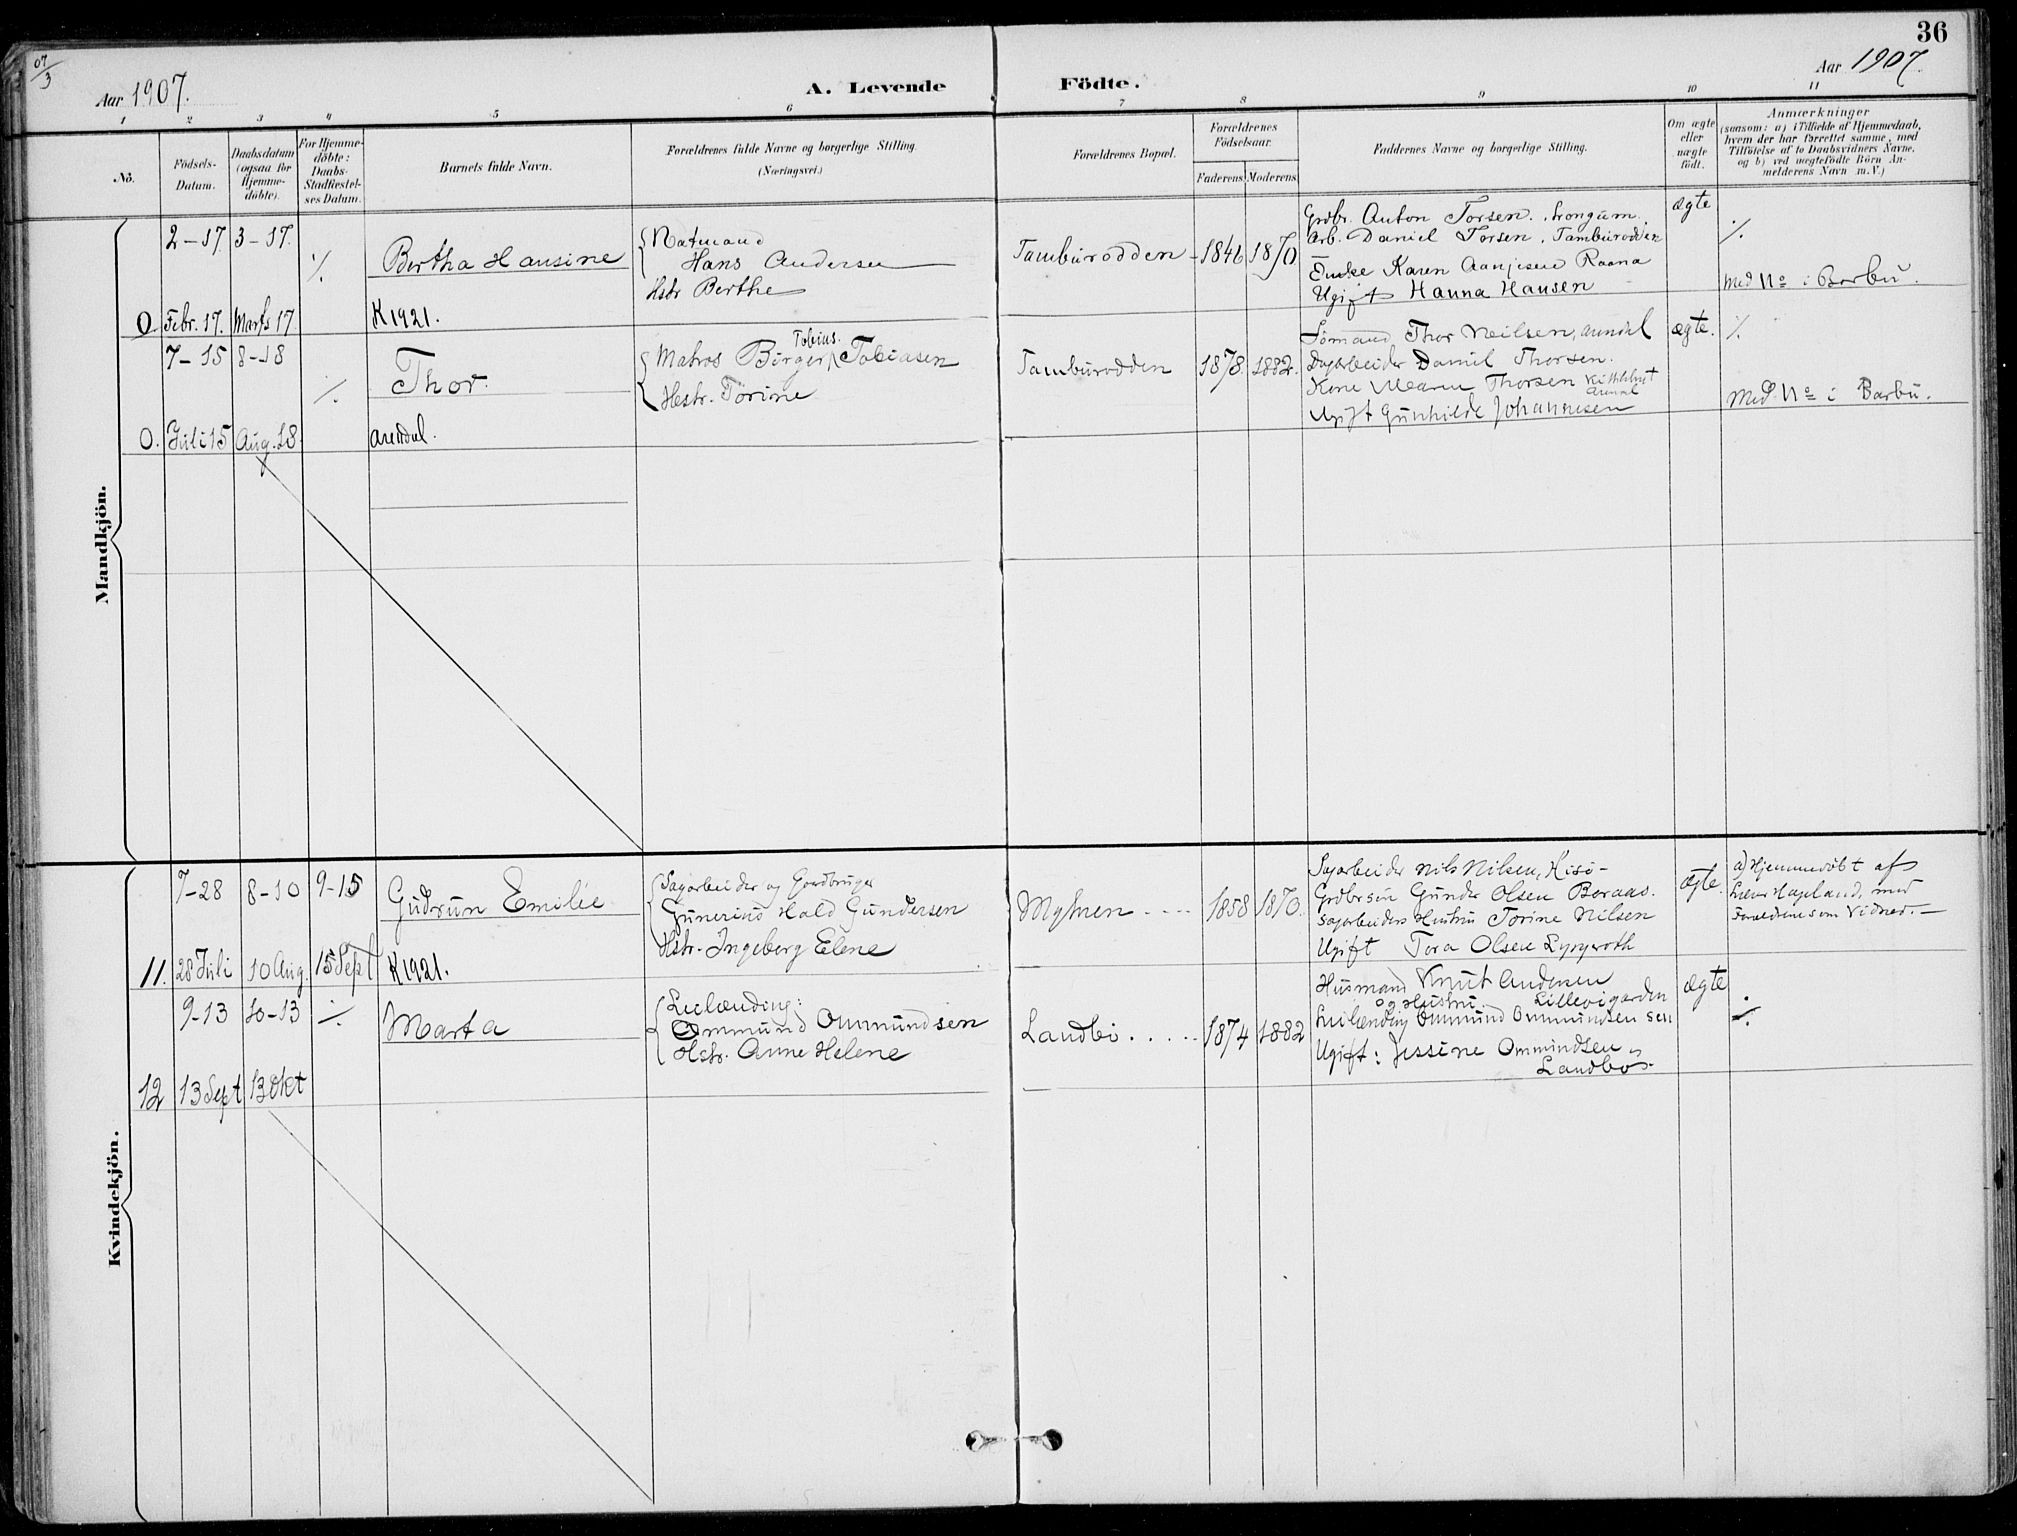 36
07/3
Aar 1907.
A. Levende Födte.
Aar 1907.
1 2 3 4 5 6 7 8 9 10 11
No.
Födsels-
Datum.
Daabsdatum
(ogsaa för
Hjemme-
döbte).
For Hjemme-
döbte:
Daabs-
Stadfæstel-
ses Datum.
Barnets fulde Navn.
Forældrenes fulde Navne og borgerlige Stilling.
(Næringsvei.)
Forældrenes Bopæl.
Forældrenes
Födselsaar.
Faderens Moderens
Faddernes Navne og borgerlige Stilling.
Om ægte
eller
uægte
födt.
Anmærkninger
(saasom: a) i Tilfælde af Hjemmedaab,
hvem der har forrettet samme, med
Tilföielse af to Daabsvidners Navne,
og b) ved uægtefödte Börn An-
melderens Navn m. V.)
Mandkjön.
2-17 3-17.
0 Febr. 17. Marts 17
./.
Bertha Hansine
K 1921.
Natmand
Hans Andersen
Hstr Berthe
Tamburodden
1846 1870
Grdbr. Anton Torsen. Trongum.
Arb. Daniel Torsen. Tamburodden
Enke Karen Aanjesen Raana
Ugift Hanna Hansen
Ægte
./.
med No i Barbu.
7-15 8-18
0. Juli 15 Aug. 18
./.
Thor
Arendal.
Tobius.
Matros Birger Tobiasen
Hstr. Torine
Tamburodden
1878. 1882.
Sömand Thor Neilsen, Arendal
Dagarbeider Daniel Thorsen.
Kone Maren Thorsen
Arendal
Ugift Gunhilde Johannesen
Ægte.
./.
med No i Barbu.
Kvindekjön.
7-28 8-10 9-15
11. 28 Juli 10 Aug. 15 Sept
Gudrun Emilie
K 1921.
Sagarbeider og Gaardbruger
Gunerius Hald Gundersen
Hstr. Ingeborg Elene
Myhren....
1858 1870.
Sagarbeider Nils Nilsen, Hisö-
Grdbrsön Gunder Olsen Beraas.
Sagarbeiders Hustru Torine Nilsen
Ugift Tora Olsen
Ægte.
a) Hjemmedöbt af
Hageland, med
Forældrene som Vidner.-
9-13 10-13
12 13 Sept 13 Okt
./.
Marta
Leilænding:
Ommund Ommundsen
Hstr. Anne Helene
Landbö.....
1874 1882
Husmand Knut Andersen
og Hustru Lillevigarden
Leilænding Ommund Ommundsen sen
Ugift: Jessine Ommundsen
Landbö.
Ægte
./.